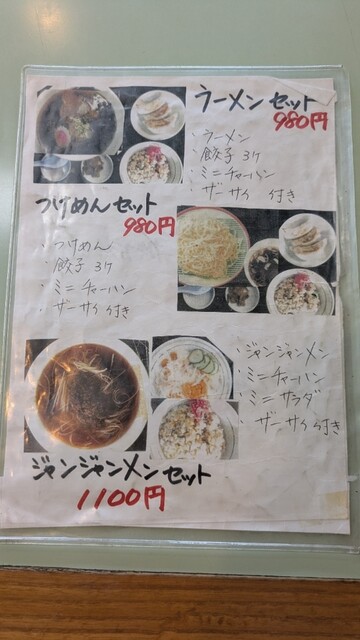 ラーメンセット
980円
・ラーメン
・餃子 3ケ
・ミニチャーハン
・ザーサイ 付き
つけめんセット
980円
・つけめん
・餃子 3ケ
・ミニチャーハン
・ザーサイ付き
・ジャンジャンメン
・ミニチャーハン
・ミニサラダ
・ザーサイ付き
ジャンジャンメンセット
1100円